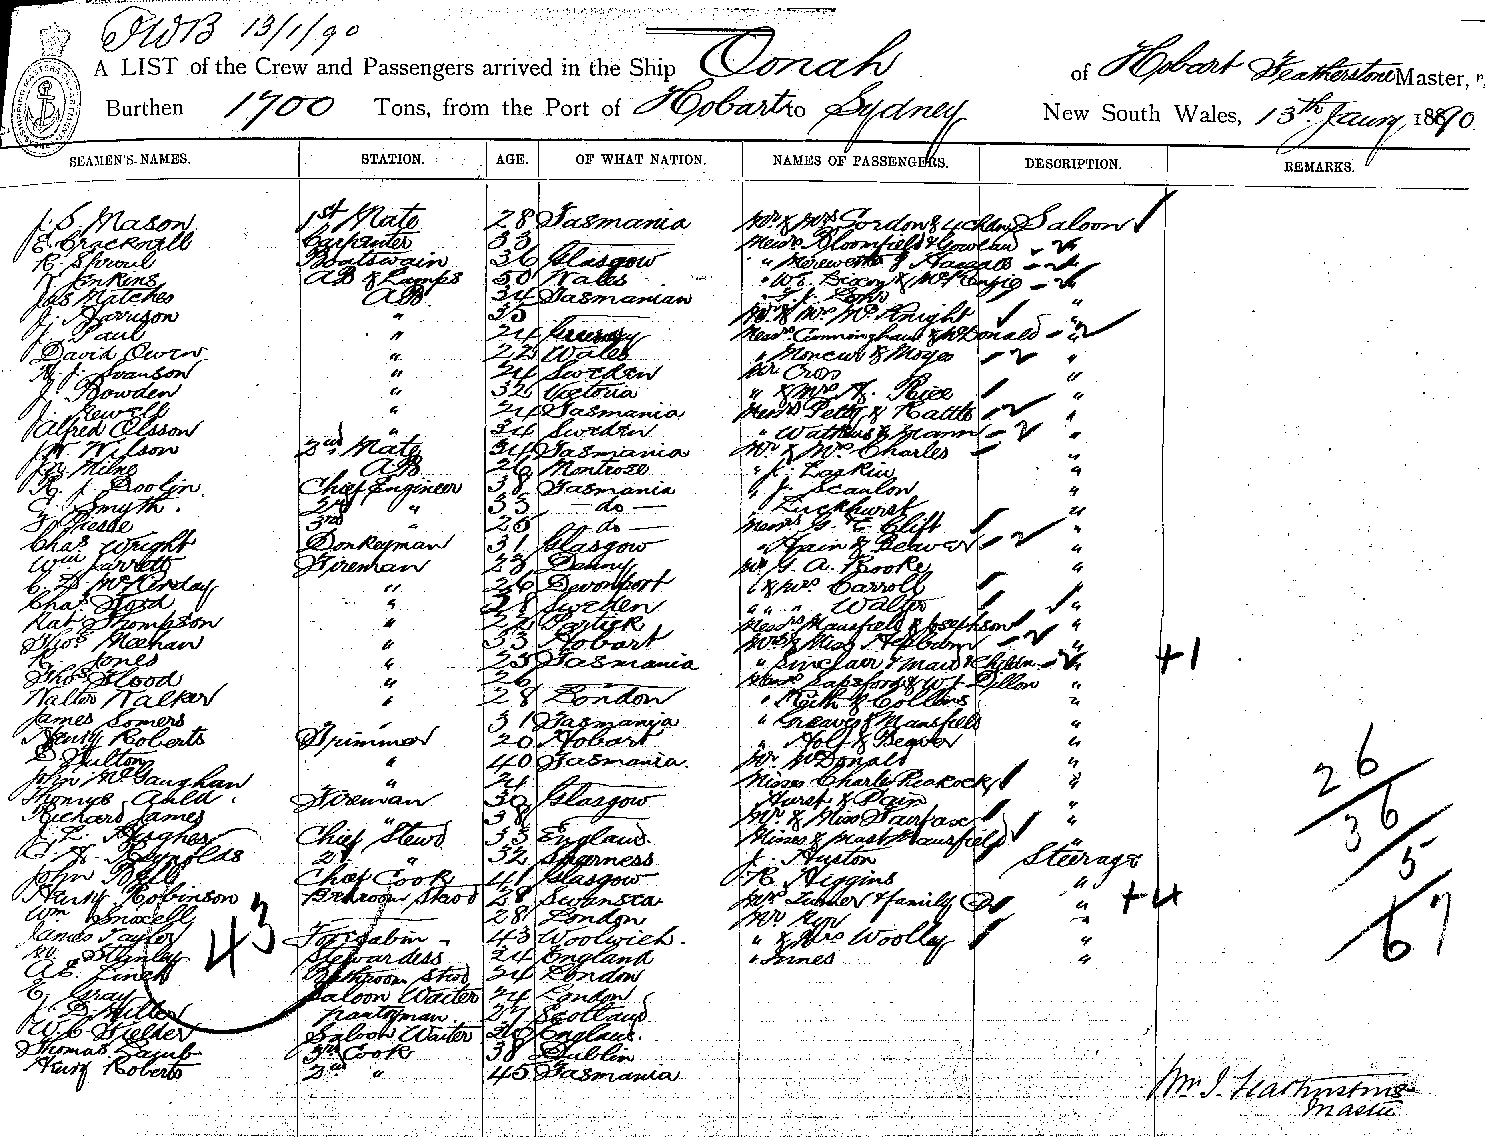 JWB 13/1/90
A LIST of the Crew and Passengers arrived in the Ship Oonah of Hobart Featherstone Master,
Burthen 1700 Tons, from the Port of Hobart to Sydney New South Wales, 13th Jany 1890
SEAMEN'S NAMES. STATION. AGE. OF WHAT NATION. NAMES OF PASSENGERS. DESCRIPTION. REMARKS.
J. S. Mason 1st Mate 28 Tasmania Mr & Mrs Gordon & Saloon
E. Cracknall Carpenter 33 Messrs Bloomfield &
R Sproul Boatswain 36 Glasgow " & Hassall
Jenkins AB & Lamps 50 Wales " & McKenzie
Jas Matches AB 34 Tasmanian "
J. Harrison " 35 Mr & Mrs McKnight "
J. Paul " 24 Messrs Cunningham & McDonald
David Owen " 22 Wales " & Moyes "
Swanson " 24 Sweden Mr Cross "
J. Bowden " 32 Victoria " & Mrs A. Rice "
J. Sewell " 24 Tasmania Messrs Petty & Rattle "
Alfred Olsson " 34 Sweden " & Mann "
W Wilson 2nd Mate 34 Tasmania Mr & Mrs Charles "
Jas Milne AB 26 Montrose " J. Larkin "
R. J. Doolin Chief Engineer 38 Tasmania " J. Scanlon "
G. Smyth. 2nd " 33 — do — Luckhurst "
Piesse 3rd " 25 — do — Messrs G. E. Clift "
Chas Wright Donkeyman 31 Glasgow " Spain & Beaver "
Wm Jarrett Fireman 23 Mr G. A. Brooke "
McKerday " 26 Devonport " & Mrs Carroll "
Chas Ford " 28 Sweden " " " Walter "
Rat Thompson " 22 Partick Messrs Mansfield & Josephson "
Thos Meehan " 33 Hobart Mrs & Miss Hepburn "
R. Jones " 25 Tasmania " Sinclair & Maid & Children +1
Thos Flood " 26 Messrs Sapsford & W. J. Dillon "
Walter Walker " 28 London " Keith & Collins "
James Somers " 31 Tasmania " Greaves & Mansfield "
Henry Roberts Trimmer 20 Hobart " Holt & Beaver "
Fulton " 40 Tasmania. Mr McDonald "
John McGaughan " 21 Misses Charley Peacock "
Thomas Auld. Fireman 30 Glasgow Hurst & Pain "
Richard James " 38 Mr & Miss Fairfax "
J. L. Hughes Chief Stewd 33 England. Misses & Mast Mansfield "
Reynolds 2nd " 32 Sheerness J. Huston Steerage
John Bell Chief Cook 41 Glasgow R. Higgins "
Harry Robinson Bedroom Stewd 28 Swansea Mrs Turner & family " +4
Wm Smoxell 28 London Mr Kerr "
James Taylor Forecabin " 43 Woolwich. " & Mrs Woolley "
M. Stanley Stewardess 24 England " Innes "
A. E. Finch Bathroom Stewd 34 London
E. Gray Saloon Waiter 24 London
J. D. Miller Pantryman 27 Scotland
W. C. Fielder Saloon Waiter 26 England.
Thomas 3rd Cook 38 Dublin
Henry Roberts 2nd " 45 Tasmania
43
26
36
5
67
Wm J. Featherstone
Master